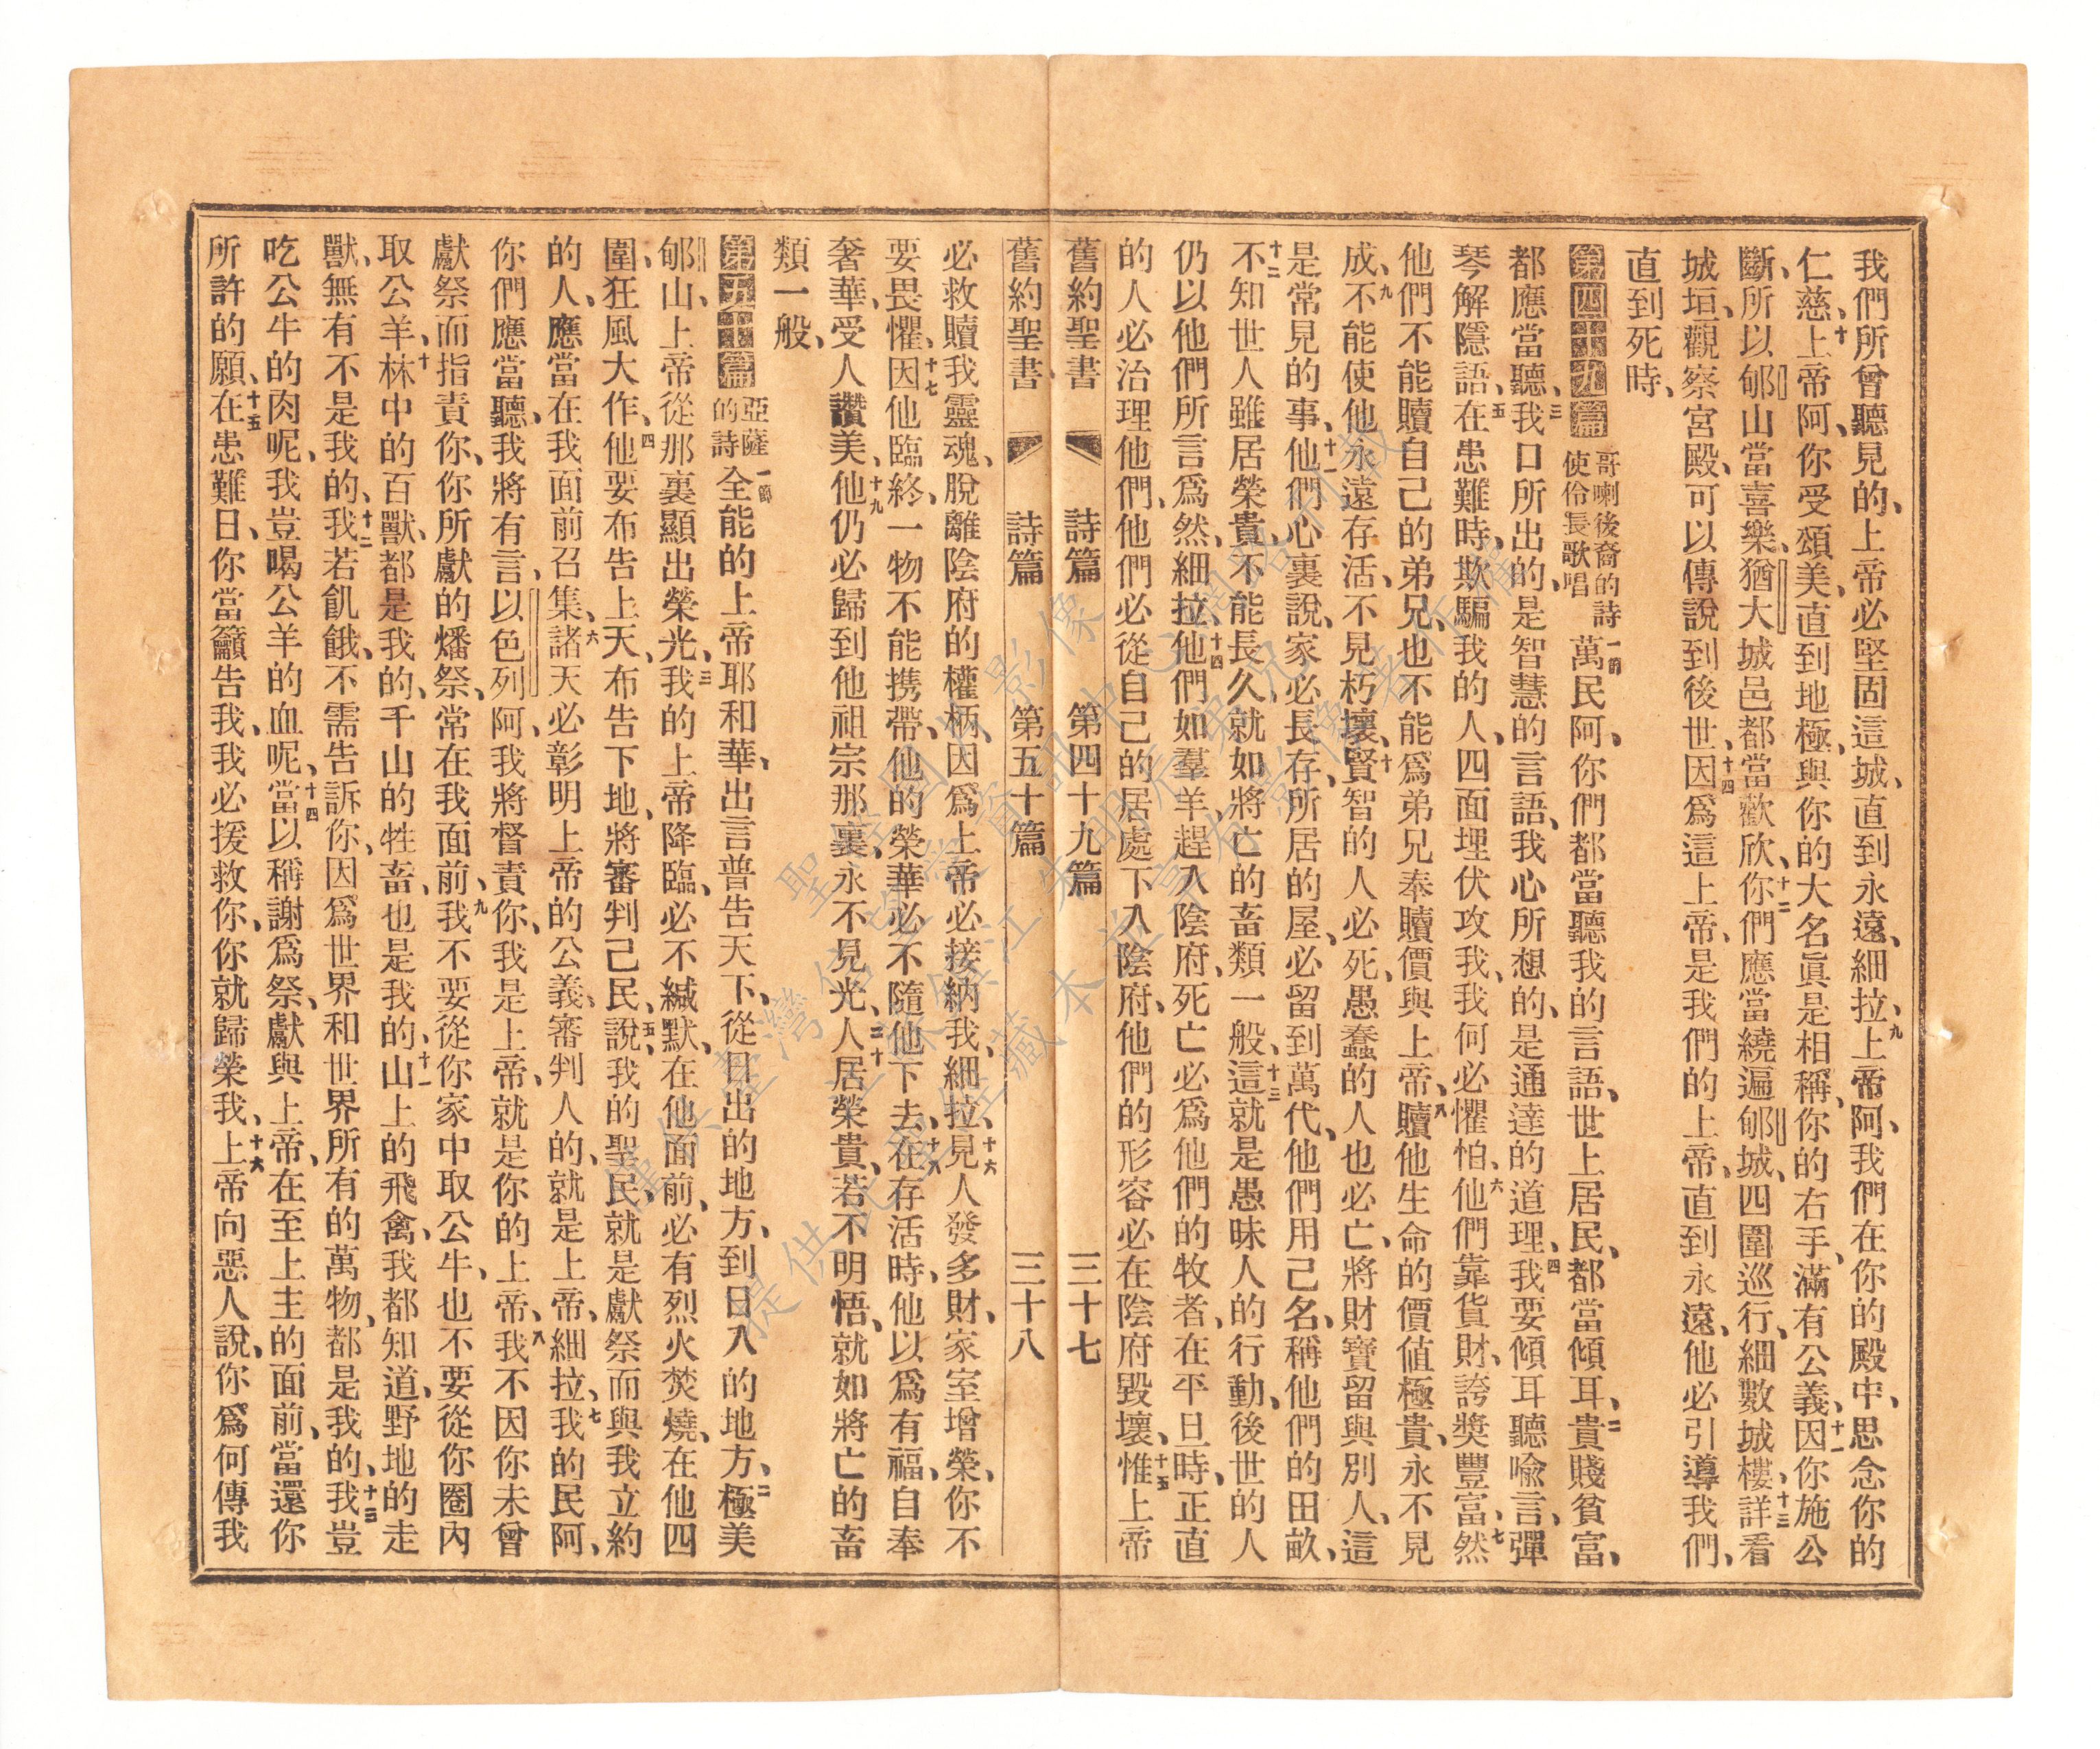 我們所曾聽見的、上帝必堅固這城、直到永遠、細拉、九上帝阿、我們在你的殿中、思念你的
仁慈、十上帝阿、你受頌美、直到地極、與你的大名眞是相稱、你的右手、滿有公義、十一因你施公
斷、所以郇山當喜樂、猶大城邑都當歡欣、十二你們應當繞遍郇城、四圍巡行、細數城樓、十三詳看
城垣、觀察宮殿、可以傳說到後世、十四因爲這上帝、是我們的上帝、直到永遠、他必引導我們、
直到死時、
第四十九篇 哥喇後裔的詩使伶長歌唱 一節萬民阿、你們都當聽我的言語、世上居民、都當傾耳、二貴賤貧富、
都應當聽、三我口所出的、是智慧的言語、我心所想的、是通達的道理、四我要傾耳聽喻言、彈
琴解隱語、五在患難時、欺騙我的人、四面埋伏攻我、我何必懼怕、六他們靠貨財、誇獎豐富、七然
他們不能贖自己的弟兄、也不能爲弟兄奉贖價與上帝、八贖他生命的價值極貴、永不見
成、九不能使他永遠存活、不見朽壞、十賢智的人必死、愚蠢的人也必亡、將財寶留與別人、這
是常見的事、十一他們心裏說、家必長存、所居的屋、必留到萬代、他們用己名、稱他們的田畝、
十二不知世人雖居榮貴、不能長久、就如將亡的畜類一般、十三這就是愚昧人的行動、後世的人
仍以他們所言爲然、細拉、十四他們如羣羊、趕入陰府、死亡必爲他們的牧者、在平旦時、正直
的人必治理他們、他們必從自己的居處下入陰府、他們的形容必在陰府毀壞、十五惟上帝
舊約聖書 詩篇 第四十九篇 三十七
舊約聖書 詩篇 第五十篇 三十八
必救贖我靈魂、脫離陰府的權柄、因爲上帝必接納我、細拉、十六見人發多財、家室增榮、你不
要畏懼、十七因他臨終、一物不能携帶、他的榮華必不隨他下去、十八在存活時、他以爲有福、自奉
奢華、受人讚美、十九他仍必歸到他祖宗那裏、永不見光、二十人居榮貴、若不明悟、就如將亡的畜
類一般、
第五十篇 亞薩的詩 一節全能的上帝耶和華、出言普告天下、從日出的地方、到日入的地方、二極美
郇山、上帝從那裏顯出榮光、三我的上帝降臨、必不緘默、在他面前、必有烈火焚燒、在他四
圍、狂風大作、四他要布告上天、布告下地、將審判己民、五說、我的聖民、就是獻祭而與我立約
的人、應當在我面前召集、六諸天必彰明上帝的公義、審判人的、就是上帝、細拉、七我的民阿、
你們應當聽、我將有言、以色列阿、我將督責你、我是上帝、就是你的上帝、八我不因你未曾
獻祭而指責你、你所獻的燔祭、常在我面前、九我不要從你家中取公牛、也不要從你圈內
取公羊、十林中的百獸、都是我的、千山的牲畜、也是我的、十一山上的飛禽、我都知道、野地的走
獸、無有不是我的、十二我若飢餓、不需告訴你、因爲世界和世界所有的萬物、都是我的、十三我豈
吃公牛的肉呢、我豈喝公羊的血呢、十四當以稱謝爲祭、獻與上帝、在至上主的面前、當還你
所許的願、十五在患難日、你當籲告我、我必援救你、你就歸榮我、十六上帝向惡人說、你爲何傳我